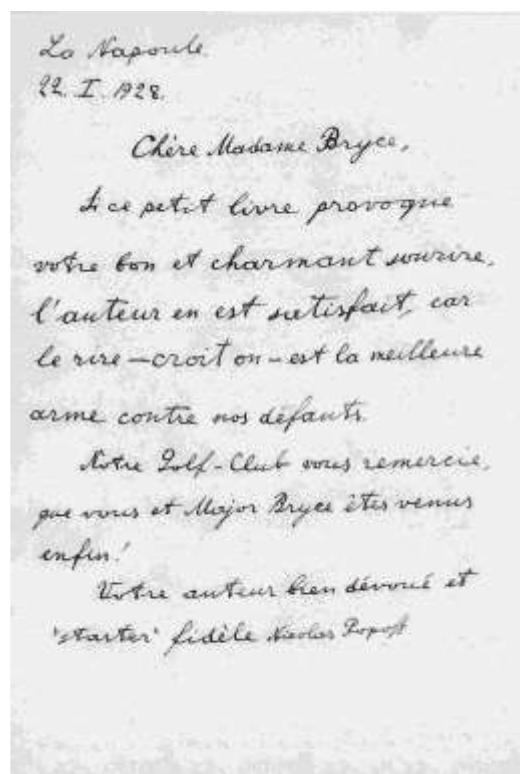 La Napoule.
22. I. 1928.
Chère Madame Bryce,
Si ce petit livre provoque
votre bon et charmant sourire,
l'auteur en est satisfait, car
le rire – croit on – est la meilleure
arme contre nos défauts.
Notre Golf-Club vous remercie,
que vous et Major Bryce êtes venus
enfin!
Votre auteur bien dévoué et
'starter' fidèle Nicolas Popoff